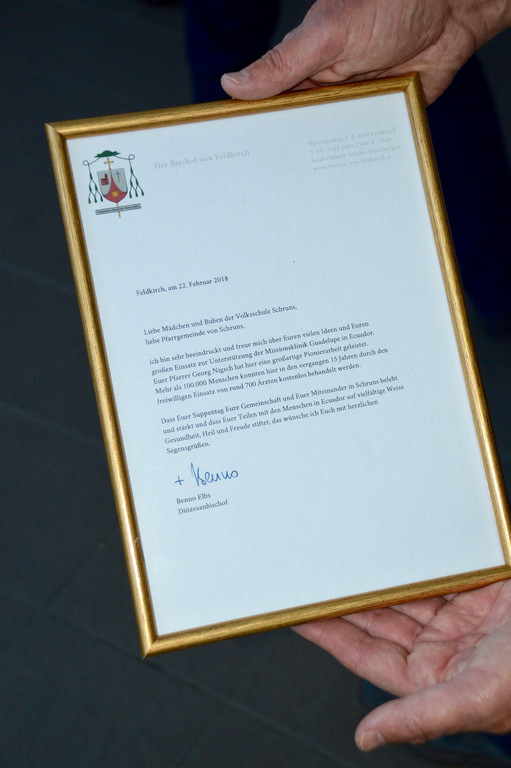 Der Bischof von Feldkirch
Feldkirch, am 22. Februar 2018
Liebe Mädchen und Buben der Volksschule Schruns,
liebe Pfarrgemeinde von Schruns,
ich bin sehr beeindruckt und freue mich über Euren vielen Ideen und Euren
großen Einsatz zur Unterstützung der Missionsklinik Guadelupe in Ecuador.
Euer Pfarrer Georg Nigsch hat hier eine großartige Pionierarbeit geleistet.
Mehr als 100.000 Menschen konnten hier in den vergangen 15 Jahren durch den
freiwilligen Einsatz von rund 700 Ärzten kostenlos behandelt werden.
Dass Euer Suppentag Eure Gemeinschaft und Euer Miteinander in Schruns belebt
und stärkt und dass Euer Teilen mit den Menschen in Ecuador auf vielfältige Weise
Gesundheit, Heil und Freude stiftet, das wünsche ich Euch mit herzlichen
Segensgrüßen.
+ Benno
Benno Elbs
Diözesanbischof